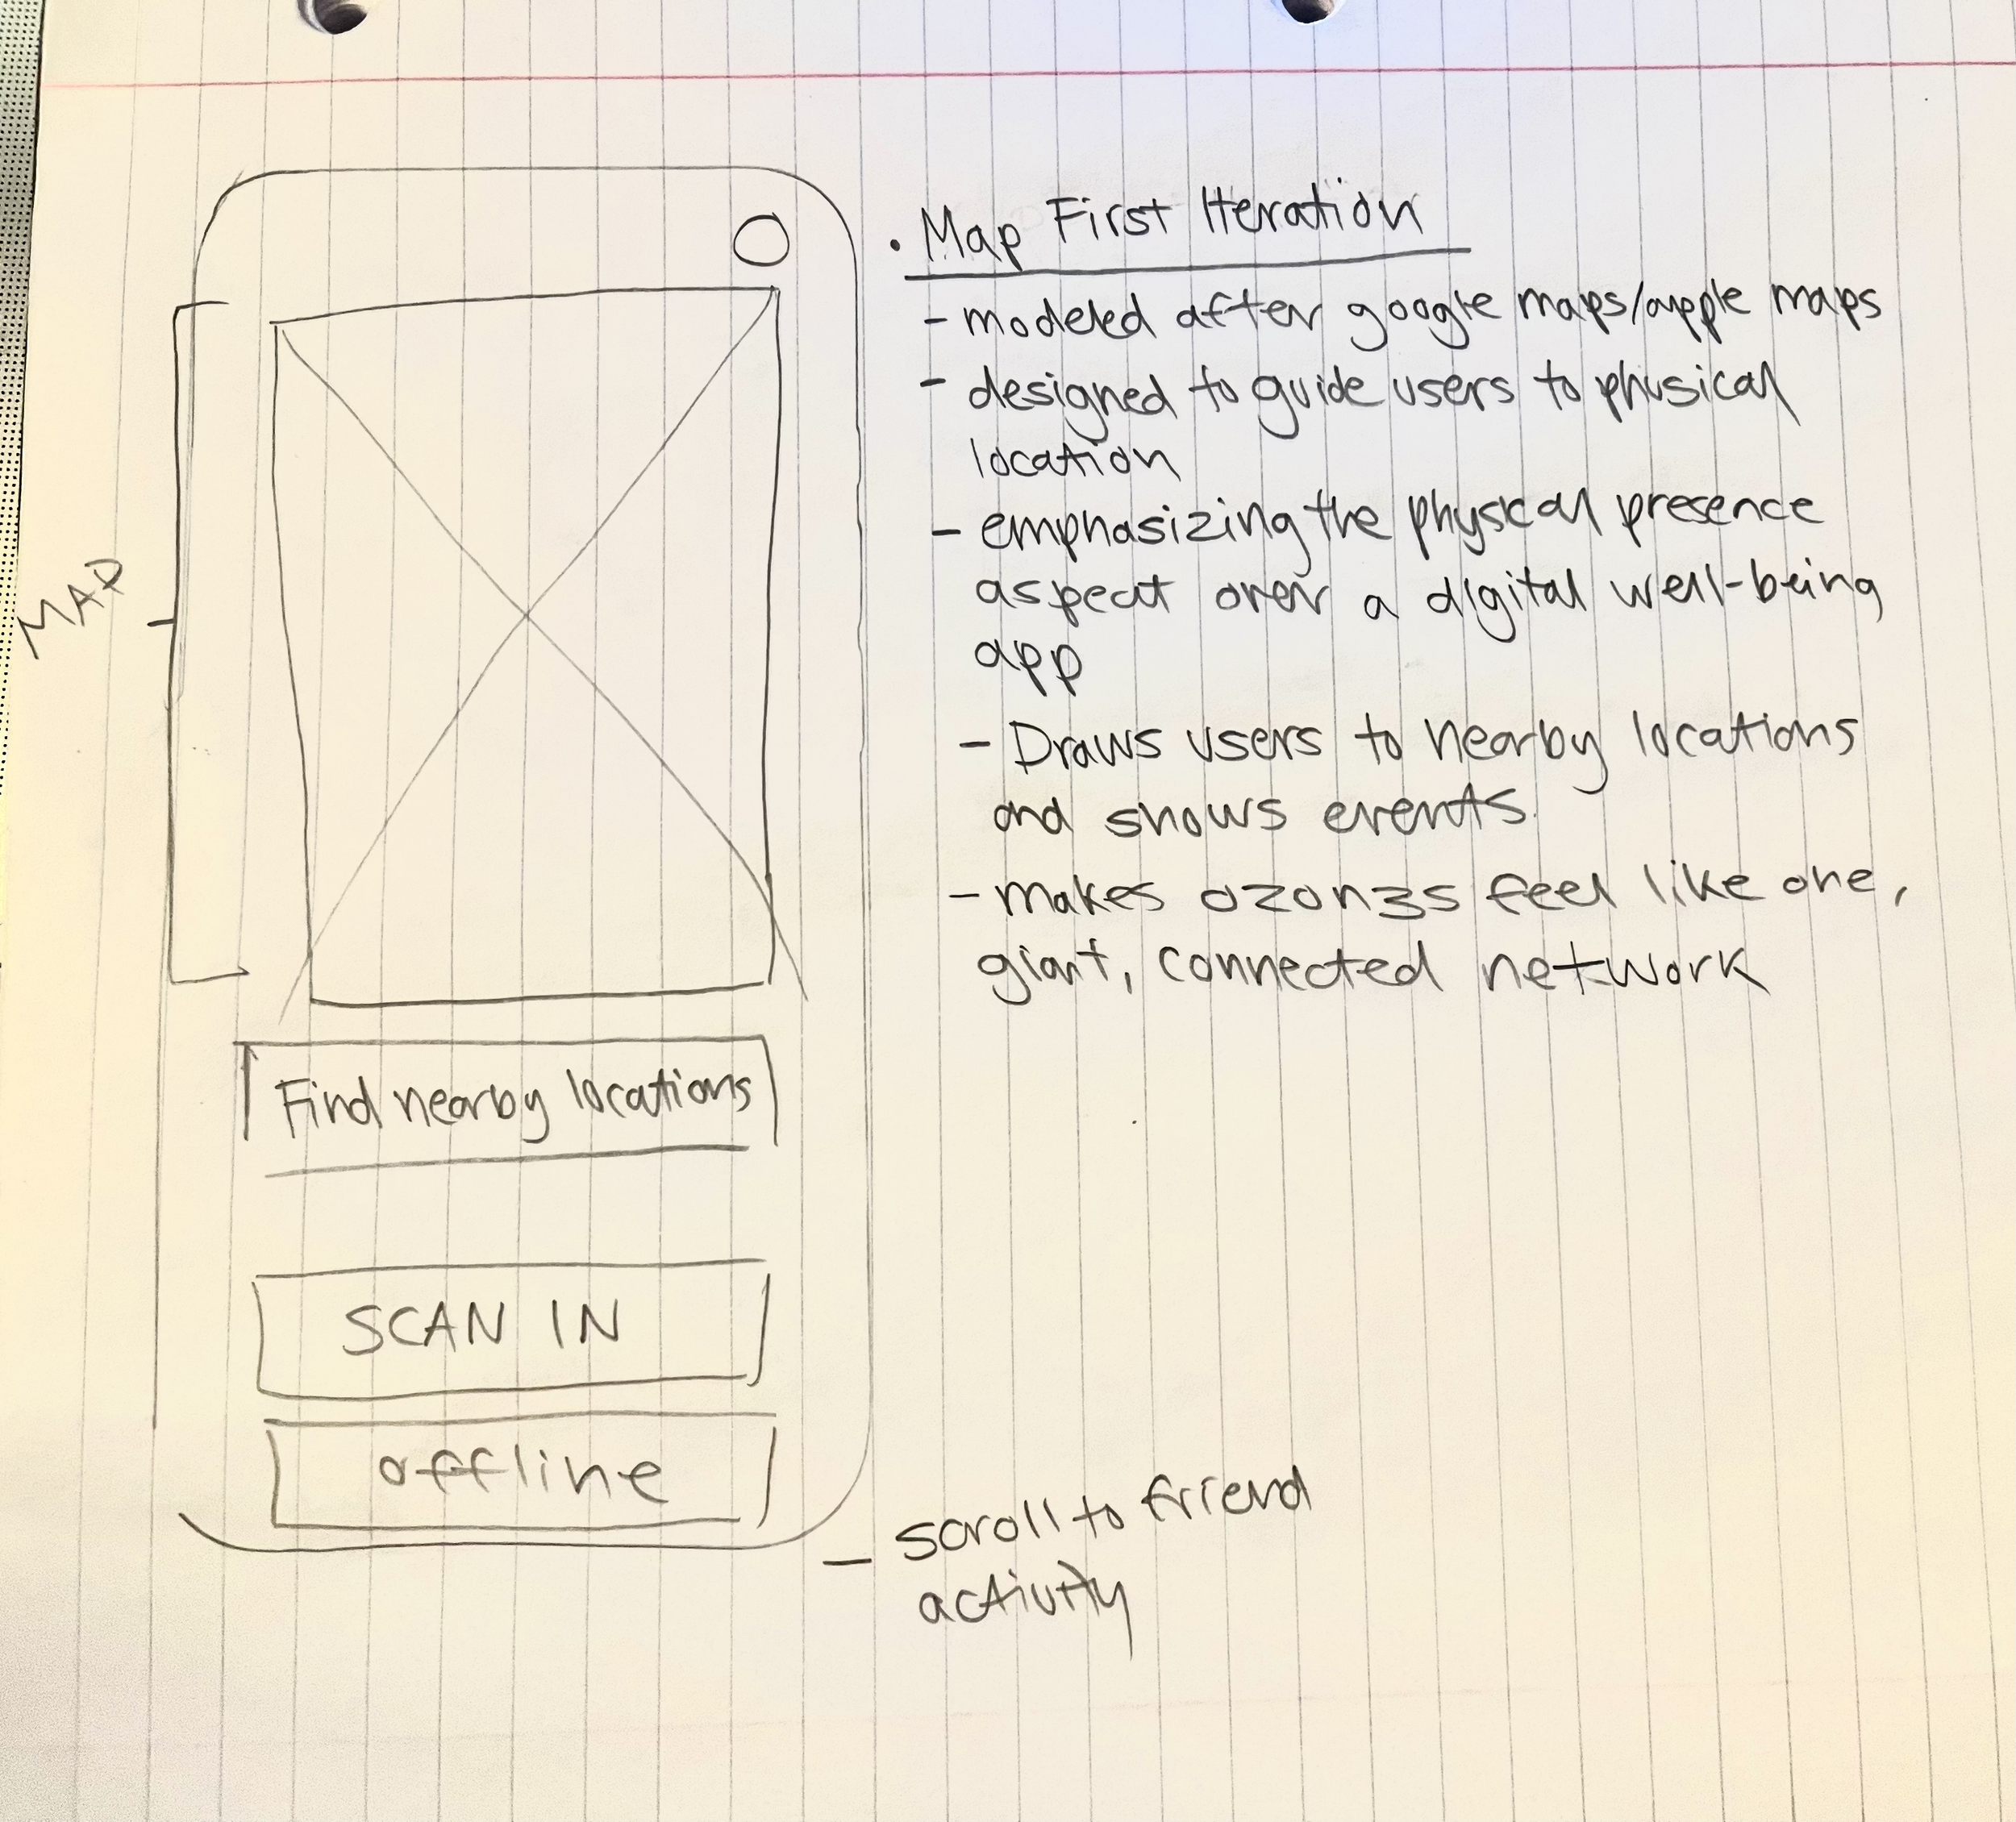 MAP
Find nearby locations
SCAN IN
offline
• Map First Iteration
- modeled after google maps/apple maps
- designed to guide users to physical
location
- emphasizing the physical presence
aspect over a digital well-being
app
- Draws users to nearby locations
and shows events.
- makes ozon3s feel like one,
giant, connected network
- scroll to friend
activity